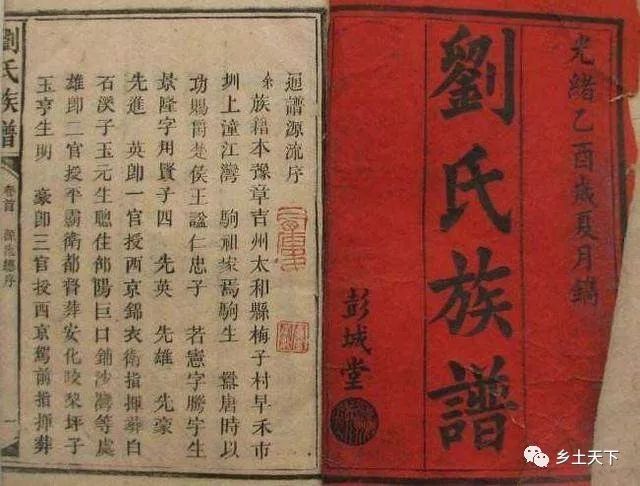 光緒乙酉歲夏月鐫
劉氏族譜
彭城堂
通譜源流序
余族籍本豫章吉州太和縣梅子村早禾市
圳上潼江灣 駒祖家焉駒生 囂唐時以
功賜爵楚侯王諡仁忠子 若憲字騰宇生
景隆字用賢子四 先英 先雄 先豪
先進 英卽一官授西京錦衣衛指揮葬白
石溪子玉元生聰住邵陽巨口鋪沙灣等處
雄卽二官授平霸衛都督葬安化咬柴坪子
玉亨生明 豪卽三官授西京駕前指揮葬
劉氏族譜
卷首 源流總序
一
乡土天下